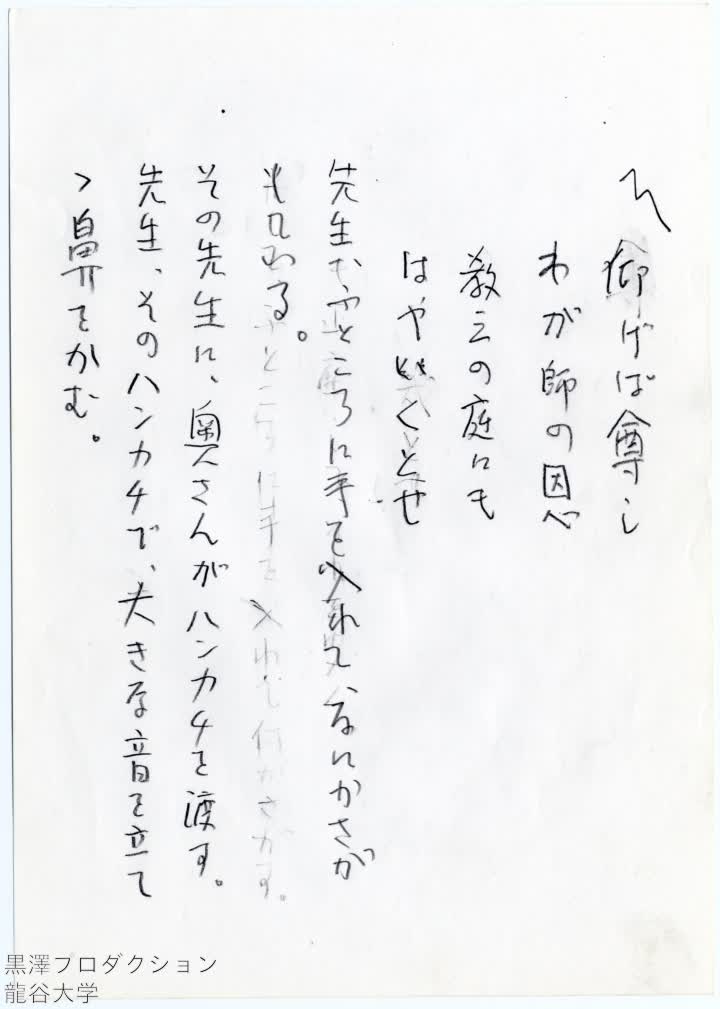 〽仰げば尊し
わが師の恩
教えの庭にも
はや幾とせ
先生、ふところに手を入れて、なにかさが
その先生に、奥さんがハンカチを渡す。
先生、そのハンカチで、大きな音を立て
ゝ鼻をかむ。
黒澤プロダクション
龍谷大学